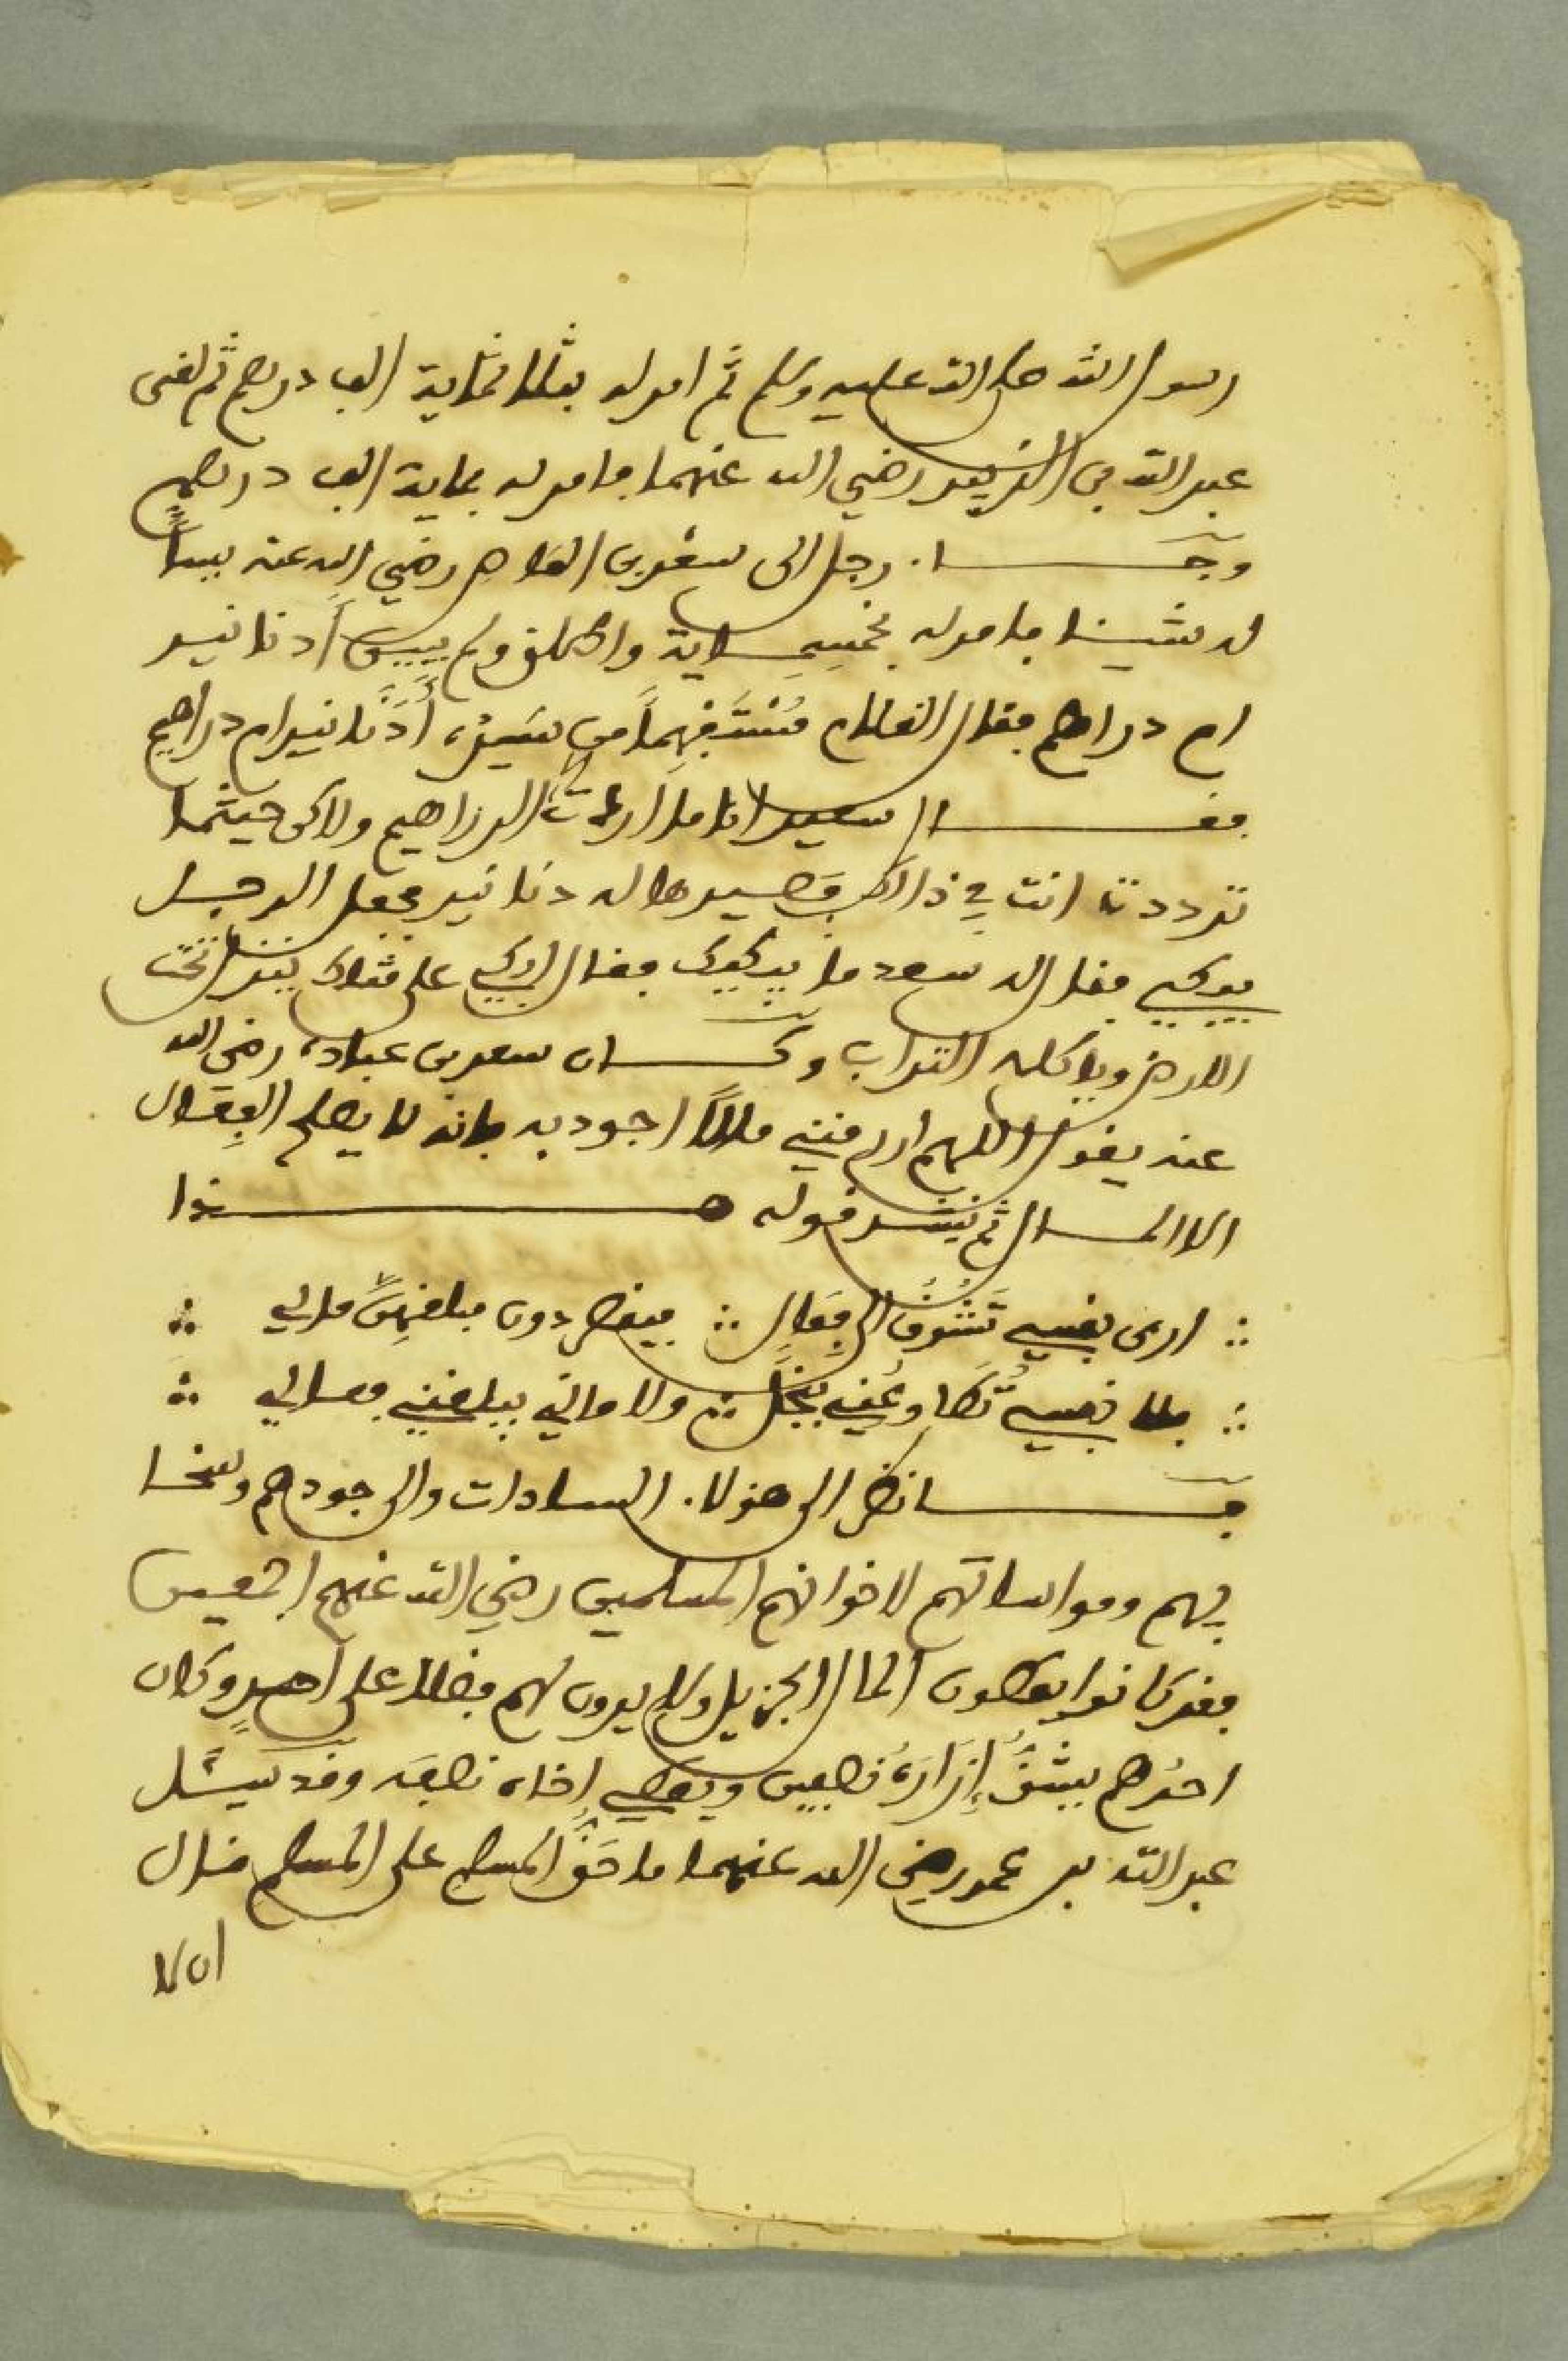 رسول الله صلى الله عليه وسلم ثم امر له بثلاثماية الف درهم ثم لقى
عبد الله بن الزبير رضي الله عنهما فامر له بماية الف درهم
وجاء رجل الى سعيد بن العاص رضي الله عنه يسأ
له شيئا فامر له بخمسماية واطلق ولم يبين أدنانير
ام دراهم فقال الغلام مُسْتَفْهِماً من سَيِّدِه أدَنانير ام دراهم
فقال سعيد انا ما اردت الا الدراهم ولاكن حيثما
ترددت انت في ذالك فصيرها له دنانير فجعل الرجل
يبكي فقال له سعد ما يبكيك فقال ابكي على مثلك ينزل تحت
الارض وياكله التراب وكان سعد بن عبادة رضي الله
عنه يقول اللهم ارزقني مالاً اجود به فانه لا يصلح الفِعَال
الا المال ثم ينشد قوله هذا
∴ ارى نفسي تَتُوقُ الى فِعَالٍ ∴ فيقصر دون مبلغهن مالي ∴
∴ فلا نفسي تُطاوعُني ببُخلٍ ∴ ولا مالي يبلغني فعالي ∴
فانظر الى هؤلاء السادات والى جودهم وسخا
يهم ومواساتهم لاخوانهم المسلمين رضي الله عنهم اجمعين
فقد كانوا يعطون المال الجزيل ولم يرون لهم فضلا على أحدٍ وكان
احدُهم يشقُّ إِزَارَهُ نصفين ويعطي إخاه نصفه وقد سئل
عبد الله بن عمر رضي الله عنهما ما حَقُّ المسلم على المسلم قال
ان لا